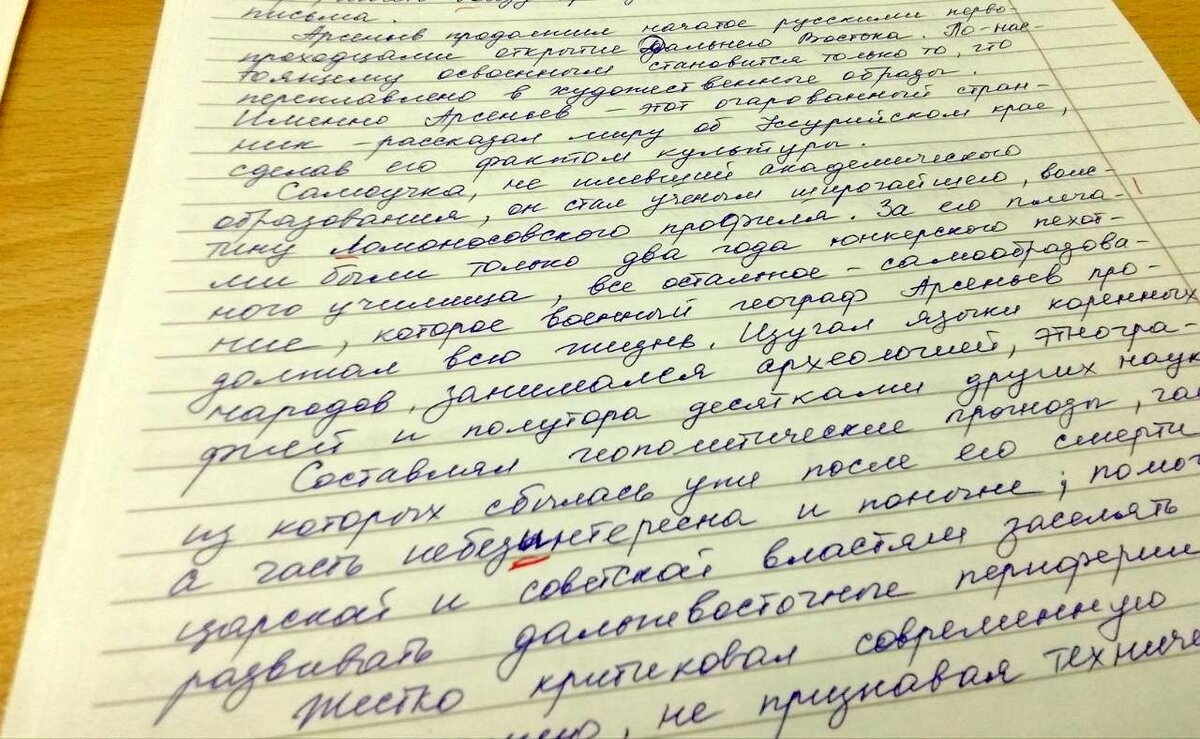 письма.
Арсеньев продолжил начатое русскими перво-
проходцами открытие Дальнего Востока. По-нас-
тоящему освоенным становится только то, что
переплавлено в художественные образы.
Именно Арсеньев – этот очарованный стран-
ник – рассказал миру об Уссурийском крае,
сделав его фактом культуры.
Самоучка, не имевший академического
образования, он стал ученым широчайшего, воис-
тину Ломоносовского профиля. За его плеча-
ми были только два года юнкерского пехот-
ного училища, все остальное – самообразова-
ние, которое военный географ Арсеньев про-
должал всю жизнь. Изучал языки коренных
народов, занимался археологией, этногра-
фией и полутора десятками других наук
Составлял геополитические прогнозы, час
из которых сбылась уже после его смерти
а часть небезынтересна и поныне; помог
царской и советской властям заселять
развивать дальневосточные периферии
Жестко критиковал современную
, не признавая техниче